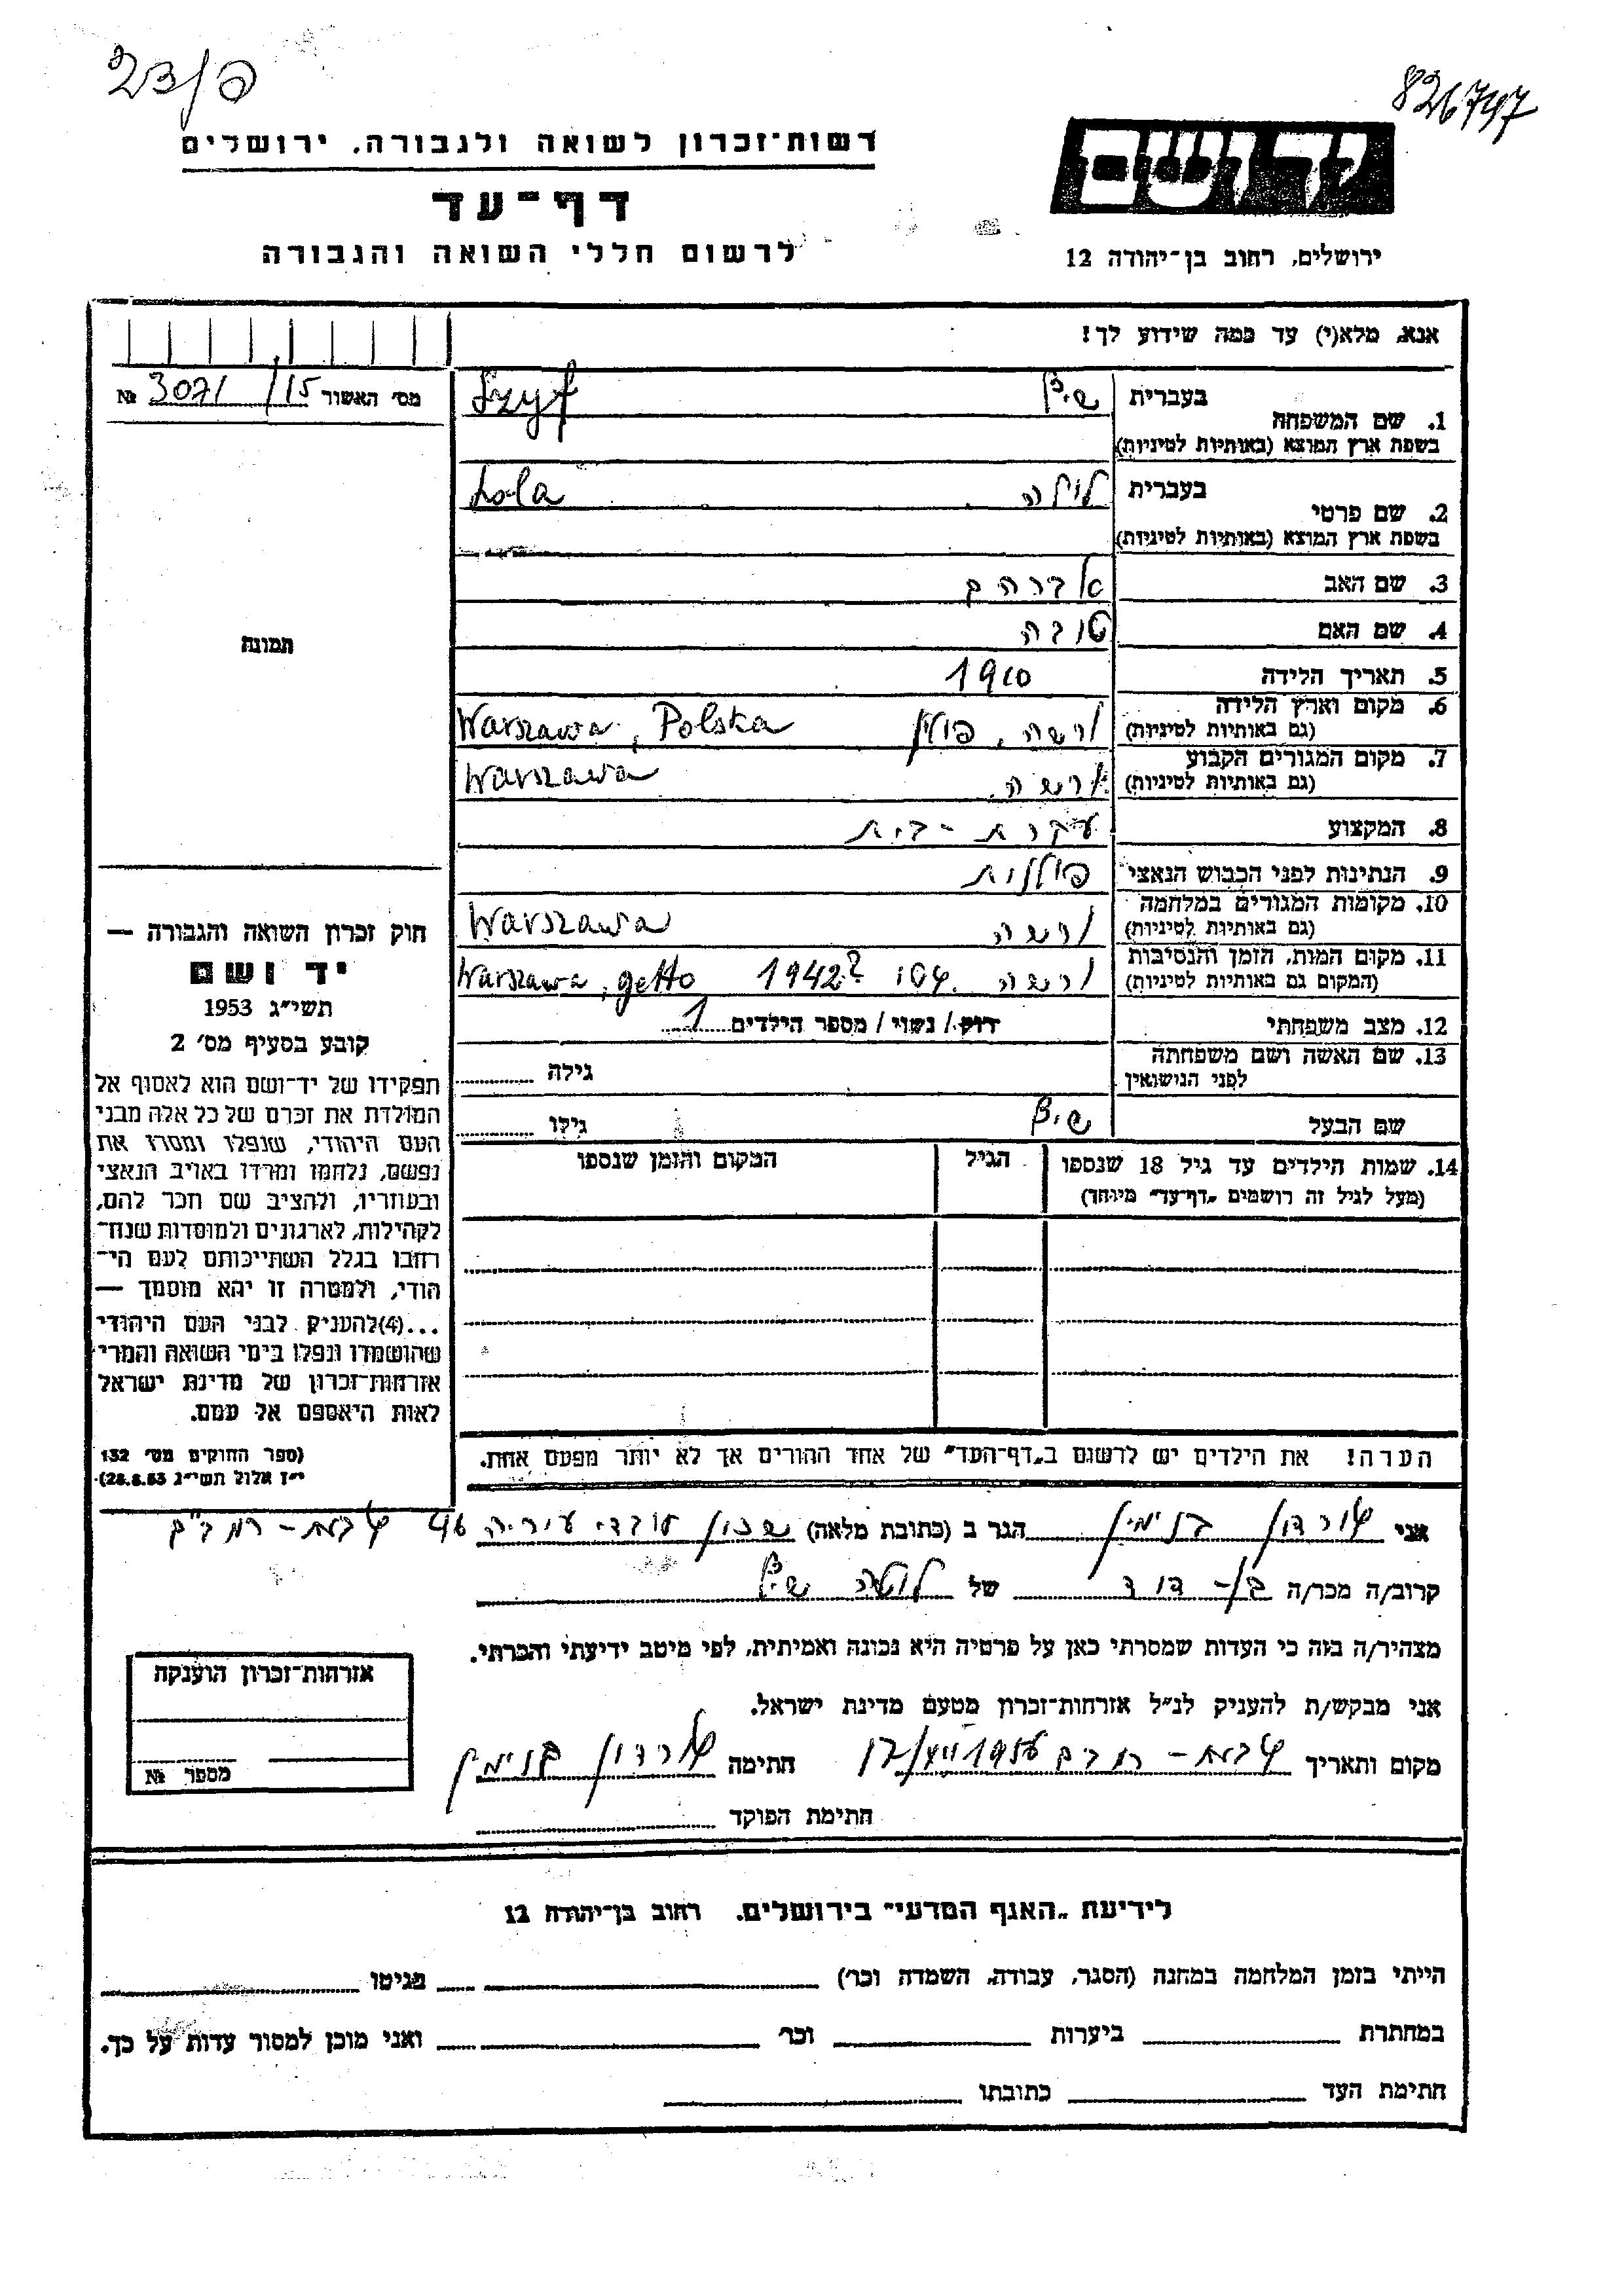 23/פ
826747
רשות־זכרון לשואה ולגבורה, ירושלים
יד ושם
דף־עד
לרשום חללי השואה והגבורה
ירושלים, רחוב בן־יהודה 12
אנא, מלא(י) עד כמה שידוע לך!
מס׳ האשור 15/3071 №
1. שם המשפחה בעברית שיף
בשפת ארץ המוצא (באותיות לטיניות) Szyf
2. שם פרטי בעברית לולה
בשפת ארץ המוצא (באותיות לטיניות) Lola
3. שם האב אברהם
4. שם האם טובה
תמונה
5. תאריך הלידה 1910
6. מקום וארץ הלידה (גם באותיות לטיניות) ורשה, פולין Warszawa, Polska
7. מקום המגורים הקבוע (גם באותיות לטיניות) ורשה. Warszawa
8. המקצוע עקרת-בית
9. הנתינות לפני הכבוש הנאצי פולנית
10. מקומות המגורים במלחמה (גם באותיות לטיניות) ורשה Warszawa
11. מקום המות, הזמן והנסיבות (המקום גם באותיות לטיניות) ורשה. גטו 1942? Warszawa, getto
12. מצב משפחתי רוק/ נשוי/ מספר הילדים 1
13. שם האשה ושם משפחתה לפני הנישואין גילה
שם הבעל שיף גילו
14. שמות הילדים עד גיל 18 שנספו (מעל לגיל זה רושמים „דף־עד״ מיוחד) הגיל המקום והזמן שנספו
חוק זכרון השואה והגבורה —
יד ושם
תשי״ג 1953
קובע בסעיף מס׳ 2
תפקידו של יד־ושם הוא לאסוף אל
המולדת את זכרם של כל אלה מבני
העם היהודי, שנפלו ומסרו את
נפשם, נלחמו ומרדו באויב הנאצי
ובעוזריו, ולהציב שם וזכר להם,
לקהילות, לארגונים ולמוסדות שנח־
רחבו בגלל השתייכותם לעם הי־
הודי, ולמטרה זו יהא מוסמך —
...(4)להעניק לבני העם היהודי
שהושמדו ונפלו בימי השואה והמרי
אזרחות־זכרון של מדינת ישראל
לאות היאספם אל עמם.
(ספר החוקים מס׳ 132
י״ז אלול תשי״ג 28.8.53)
הערה! את הילדים יש לרשום ב„דף־העד״ של אחד ההורים אך לא יותר מפעם אחת.
אני בנימין הגר ב (כתובת מלאה) שכון עובדי עיריה 46
קרוב/ה מכר/ה בן-דוד של לולה שיף
מצהיר/ה בזה כי העדות שמסרתי כאן על פרטיה היא נכונה ואמיתית, לפי מיטב ידיעתי והכרתי.
אני מבקש/ת להעניק לנ״ל אזרחות־זכרון מטעם מדינת ישראל.
מקום ותאריך 1956 חתימה בנימין
חתימת הפוקד
אזרחות־זכרון הוענקה
מספר №
לידיעת „האגף המדעי״ בירושלים. רחוב בן־יהודה 12
הייתי בזמן המלחמה במחנה (הסגר, עבודה, השמדה וכר׳) בגיטו
במחתרת ביערות וכר׳ ואני מוכן למסור עדות על כך.
חתימת העד כתובתו